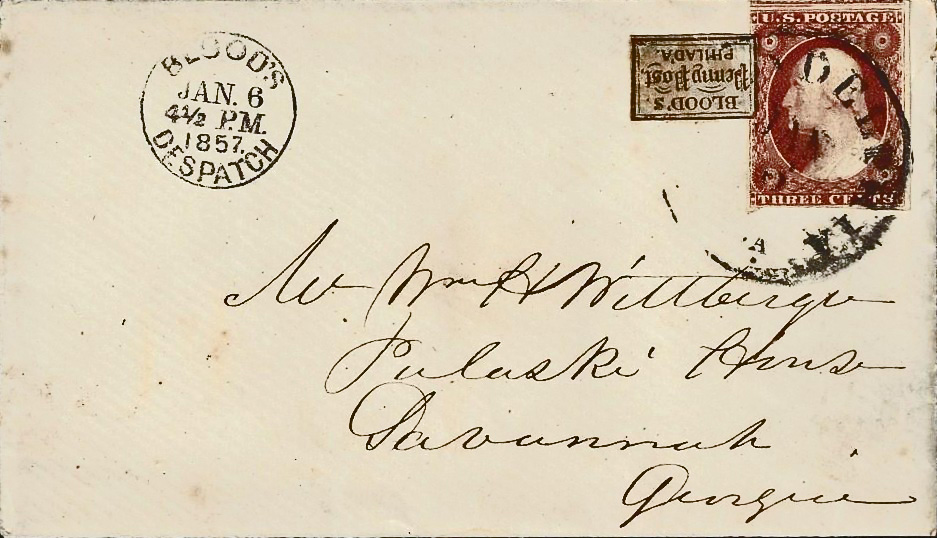 BLOOD'S
JAN. 6
4½ P.M.
1857.
DESPATCH
BLOOD'S
Penny Post
PHILADA.
U.S. POSTAGE
THREE CENTS
Mr Wm H Wittberger
Pulaski House
Savannah
Georgia